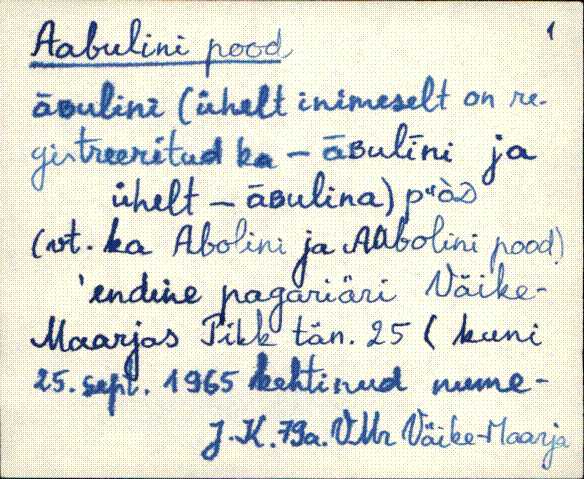 Aabulini pood 1
āʙulini (ühelt inimeselt on re-
gistreeritud ka – āʙulīni ja
ühelt – āʙulina)
(vt. ka Abolini ja Aabolini pood)
'endine pagariäri Väike-
Maarjas Pikk tän. 25 ( kuni
25. sept. 1965 kehtinud nume-
J.K. 79a. VMr Väike-Maarja